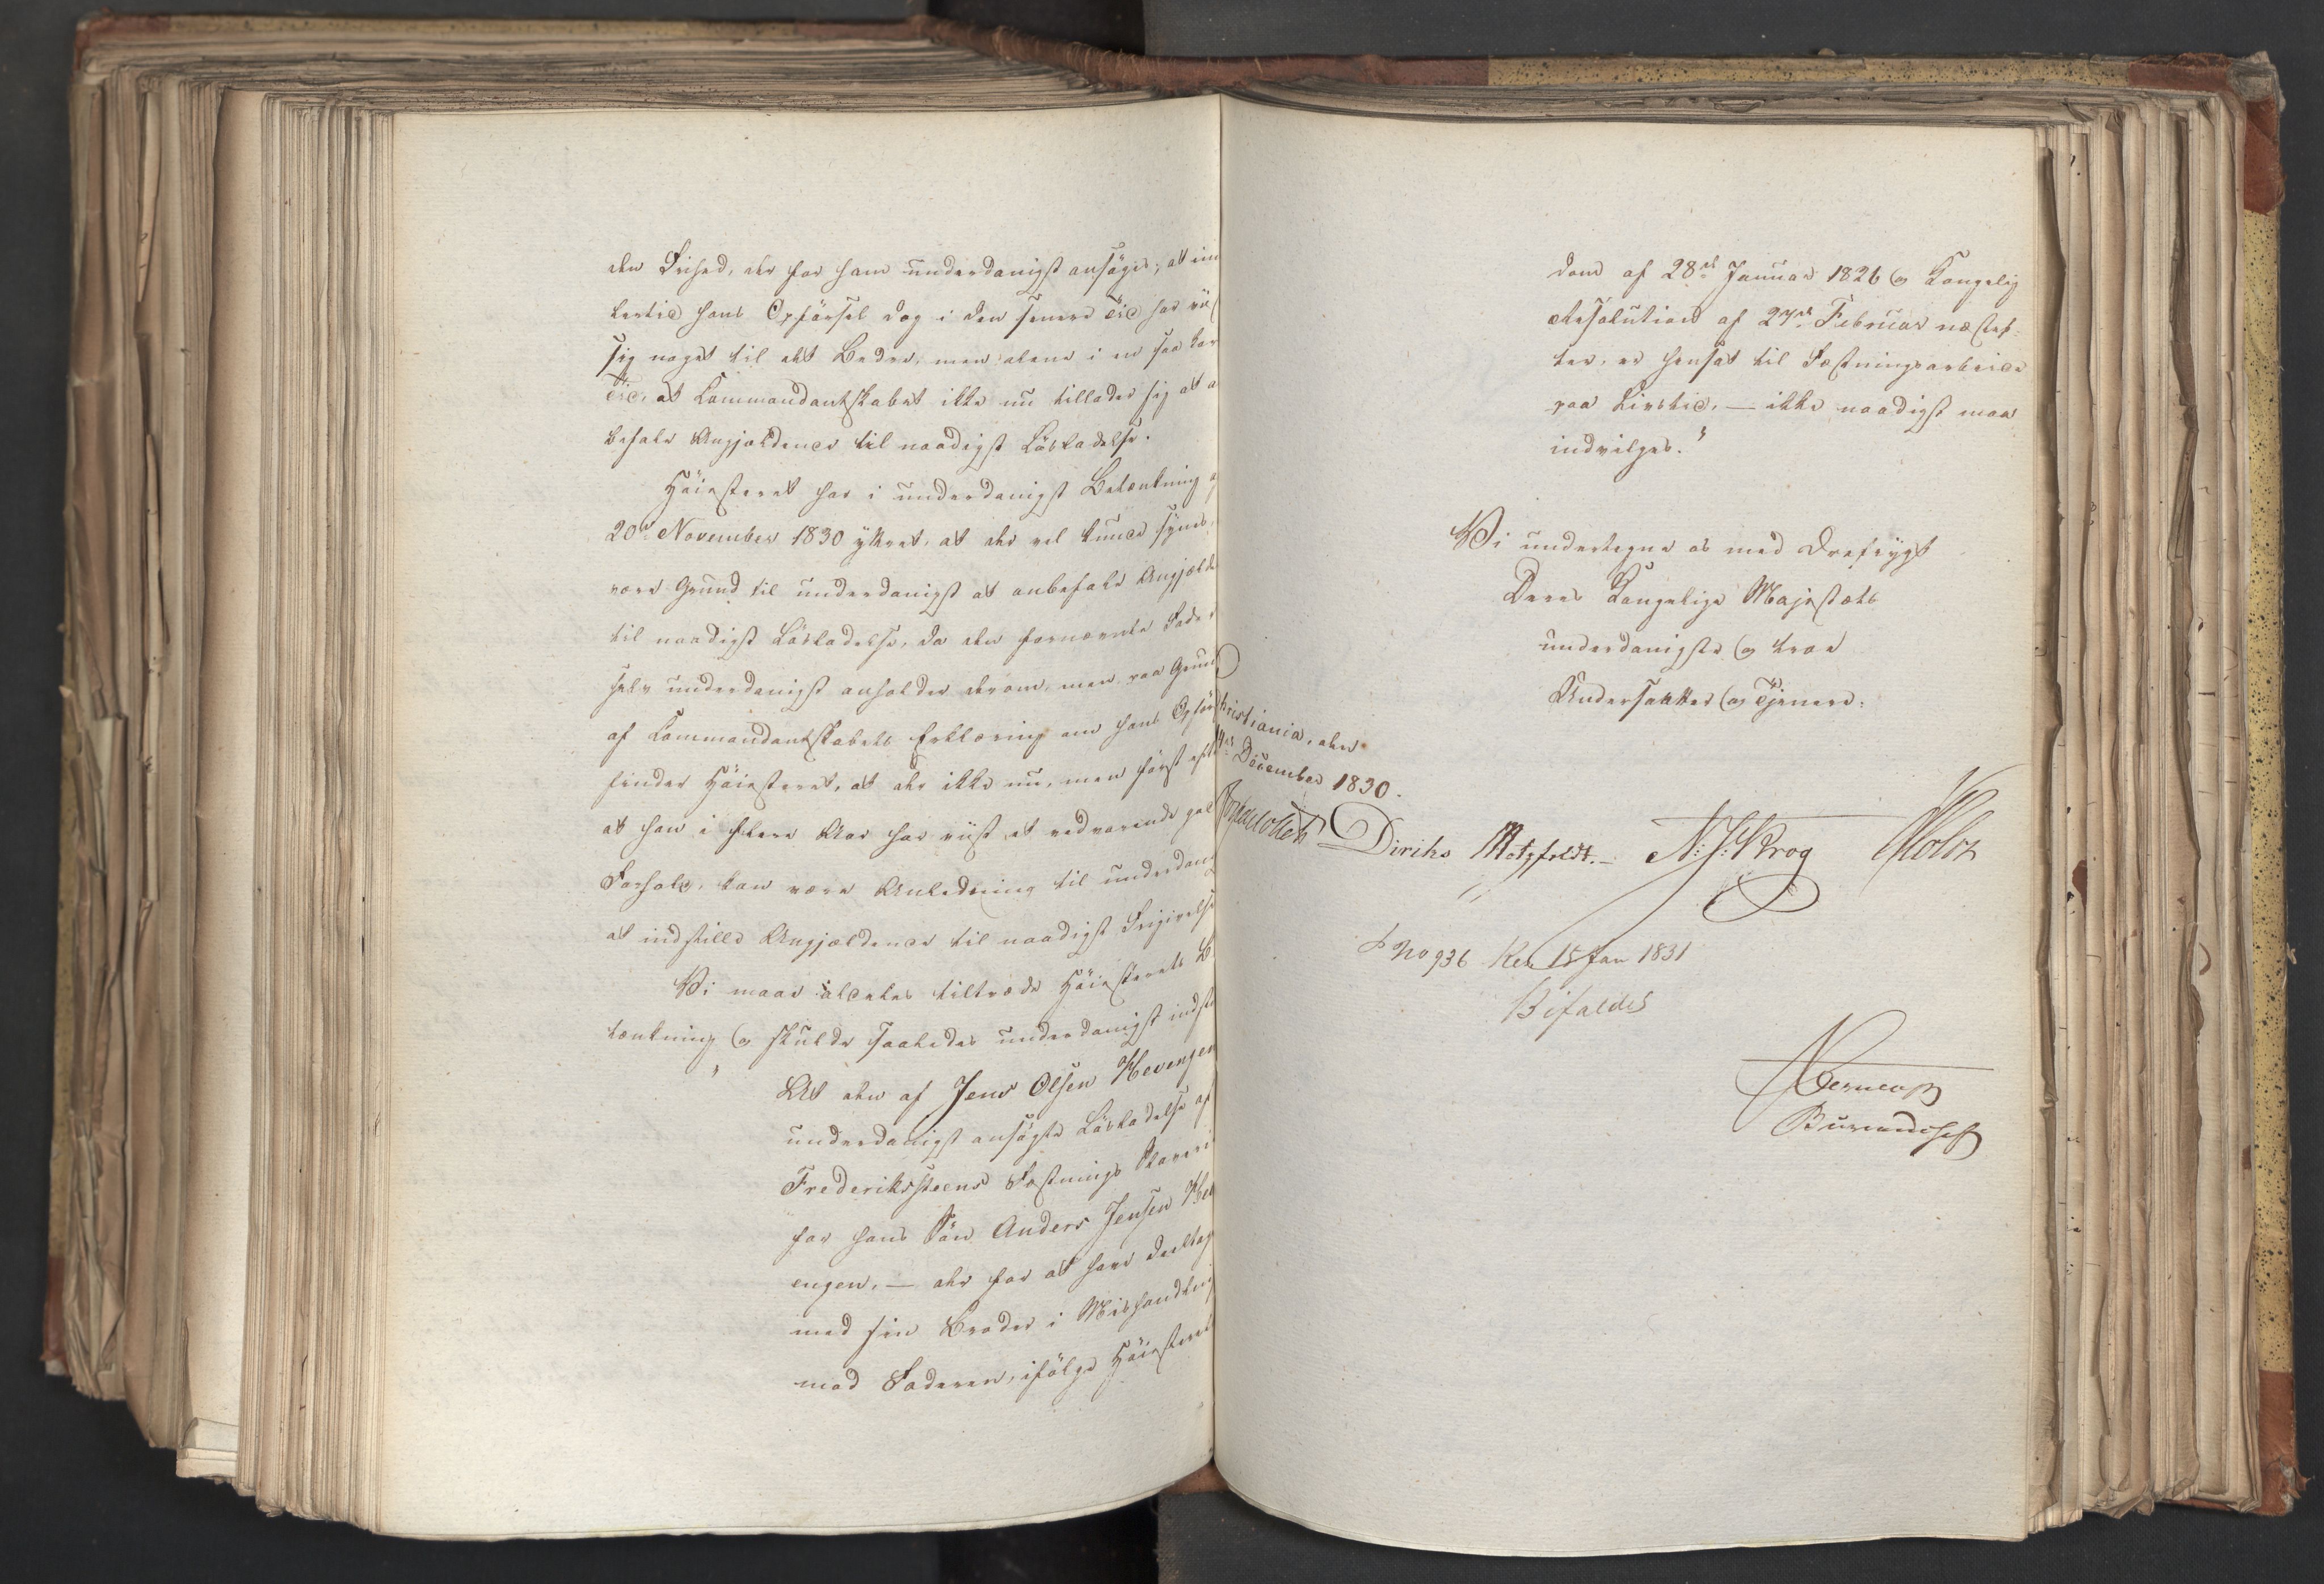 den Frihed, der for ham underdanigst ansøges; at im
lertid hans Opførsel dog i den senere Tid har
sig noget til det Bedre, men alene i en saa kor
Tid, at Kommandantskabet ikke nu tillader sig at a
befale Angjældende til naadigst Løsladelse.
Høiesteret har i underdanigst Betænkning
20de November 1830 yttret, at der vel kunde synes,
være Grund til underdanigst at anbefale Angjæld
til naadigst Løsladelse, da den fornærmede Fader
selv underdanigst anholder derom, men paa Grund
af Kommandantskabets Erklæring om hans Opfør
finder Høiesteret, at der ikke nu, men først eft
at han i flere Aar har viist et vedvarende god
Forhold, kan være Anledning til underdan
at indstille Angjældende til naadigst Frigivelse
Vi maae aldeles tiltræde Høiesterets B
tænkning og skulde saaledes underdanigst indst
" At den af Jens Olsen Hevengen
underdanigst ansøgte Løsladelse af
Frederikssteens Fæstnings Slaveri
for hans Søn Anders Jensen Hev
engen, — der for at have deeltag
med sin Broder i Mishandling
mod Faderen, ifølge Høiesteret
Dom af 28de Januar 1826 og Kongelig
Resolution af 27de Februar næstef-
ter, er hensat til Fæstningsarbeide
paa Livstid, — ikke naadigst maa
indvilges."
Vi undertegne os med Ærefrygt
Deres Kongelige Majestæts
underdanigste og troe
Undersaatter og Tjenere.
Christiania, den
December 1830.
Diriks Motzfeldt. N: J: Krog Holst
No 936 Res 15 Jan 1831
Bifaldes